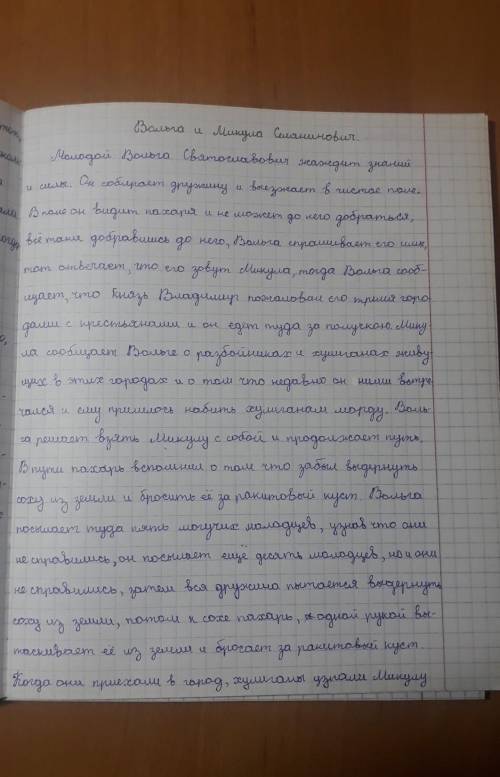 Вольга и Микула Селянинович.
Молодой Вольга Святославович жаждит знаний
и силы. Он собирает дружину и выезжает в чистое поле.
В поле он видит пахаря и не может до него добраться,
всё таки добравшись до него, Вольга спрашивает его имя,
тот отвечает, что его зовут Микула, тогда Вольга сооб-
щает, что Князь Владимир пожаловал его тремя горо-
дами с крестьянами и он едет туда за получкою. Мику
ла сообщает Вольге о разбойниках и хулиганах живу-
щих в этих городах и о том что недавно он ними встре
чался и ему пришлось набить хулиганам морду. Воль-
га решает взять Микулу с собой и продолжает путь.
В пути пахарь вспомнил о том что забыл выдернуть
соху из земли и бросить её за ракитовый куст. Вольга
посылает туда пять могучих молодцев, узнав что они
не справились, он посылает ещё десять молодцев, но и они
не справились, затем вся дружина пытается выдернуть
соху из земли, потом к сохе пахарь, одной рукой вы-
таскивает её из земли и бросает за ракитовый куст.
Когда они приехали в город, хулиганы узнали Микулу